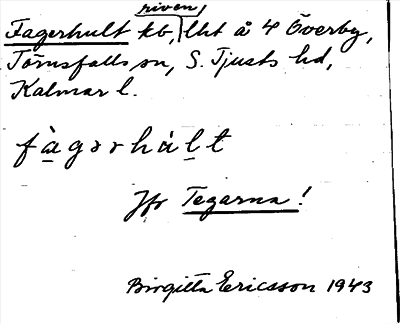 riven,
Fagerhult kb, lht å 4 Överby,
Törnsfalls sn, S. Tjusts hd,
Kalmar l.
fàgərhul̠t
Jfr Tegarna!
Birgitta Ericsson 1943